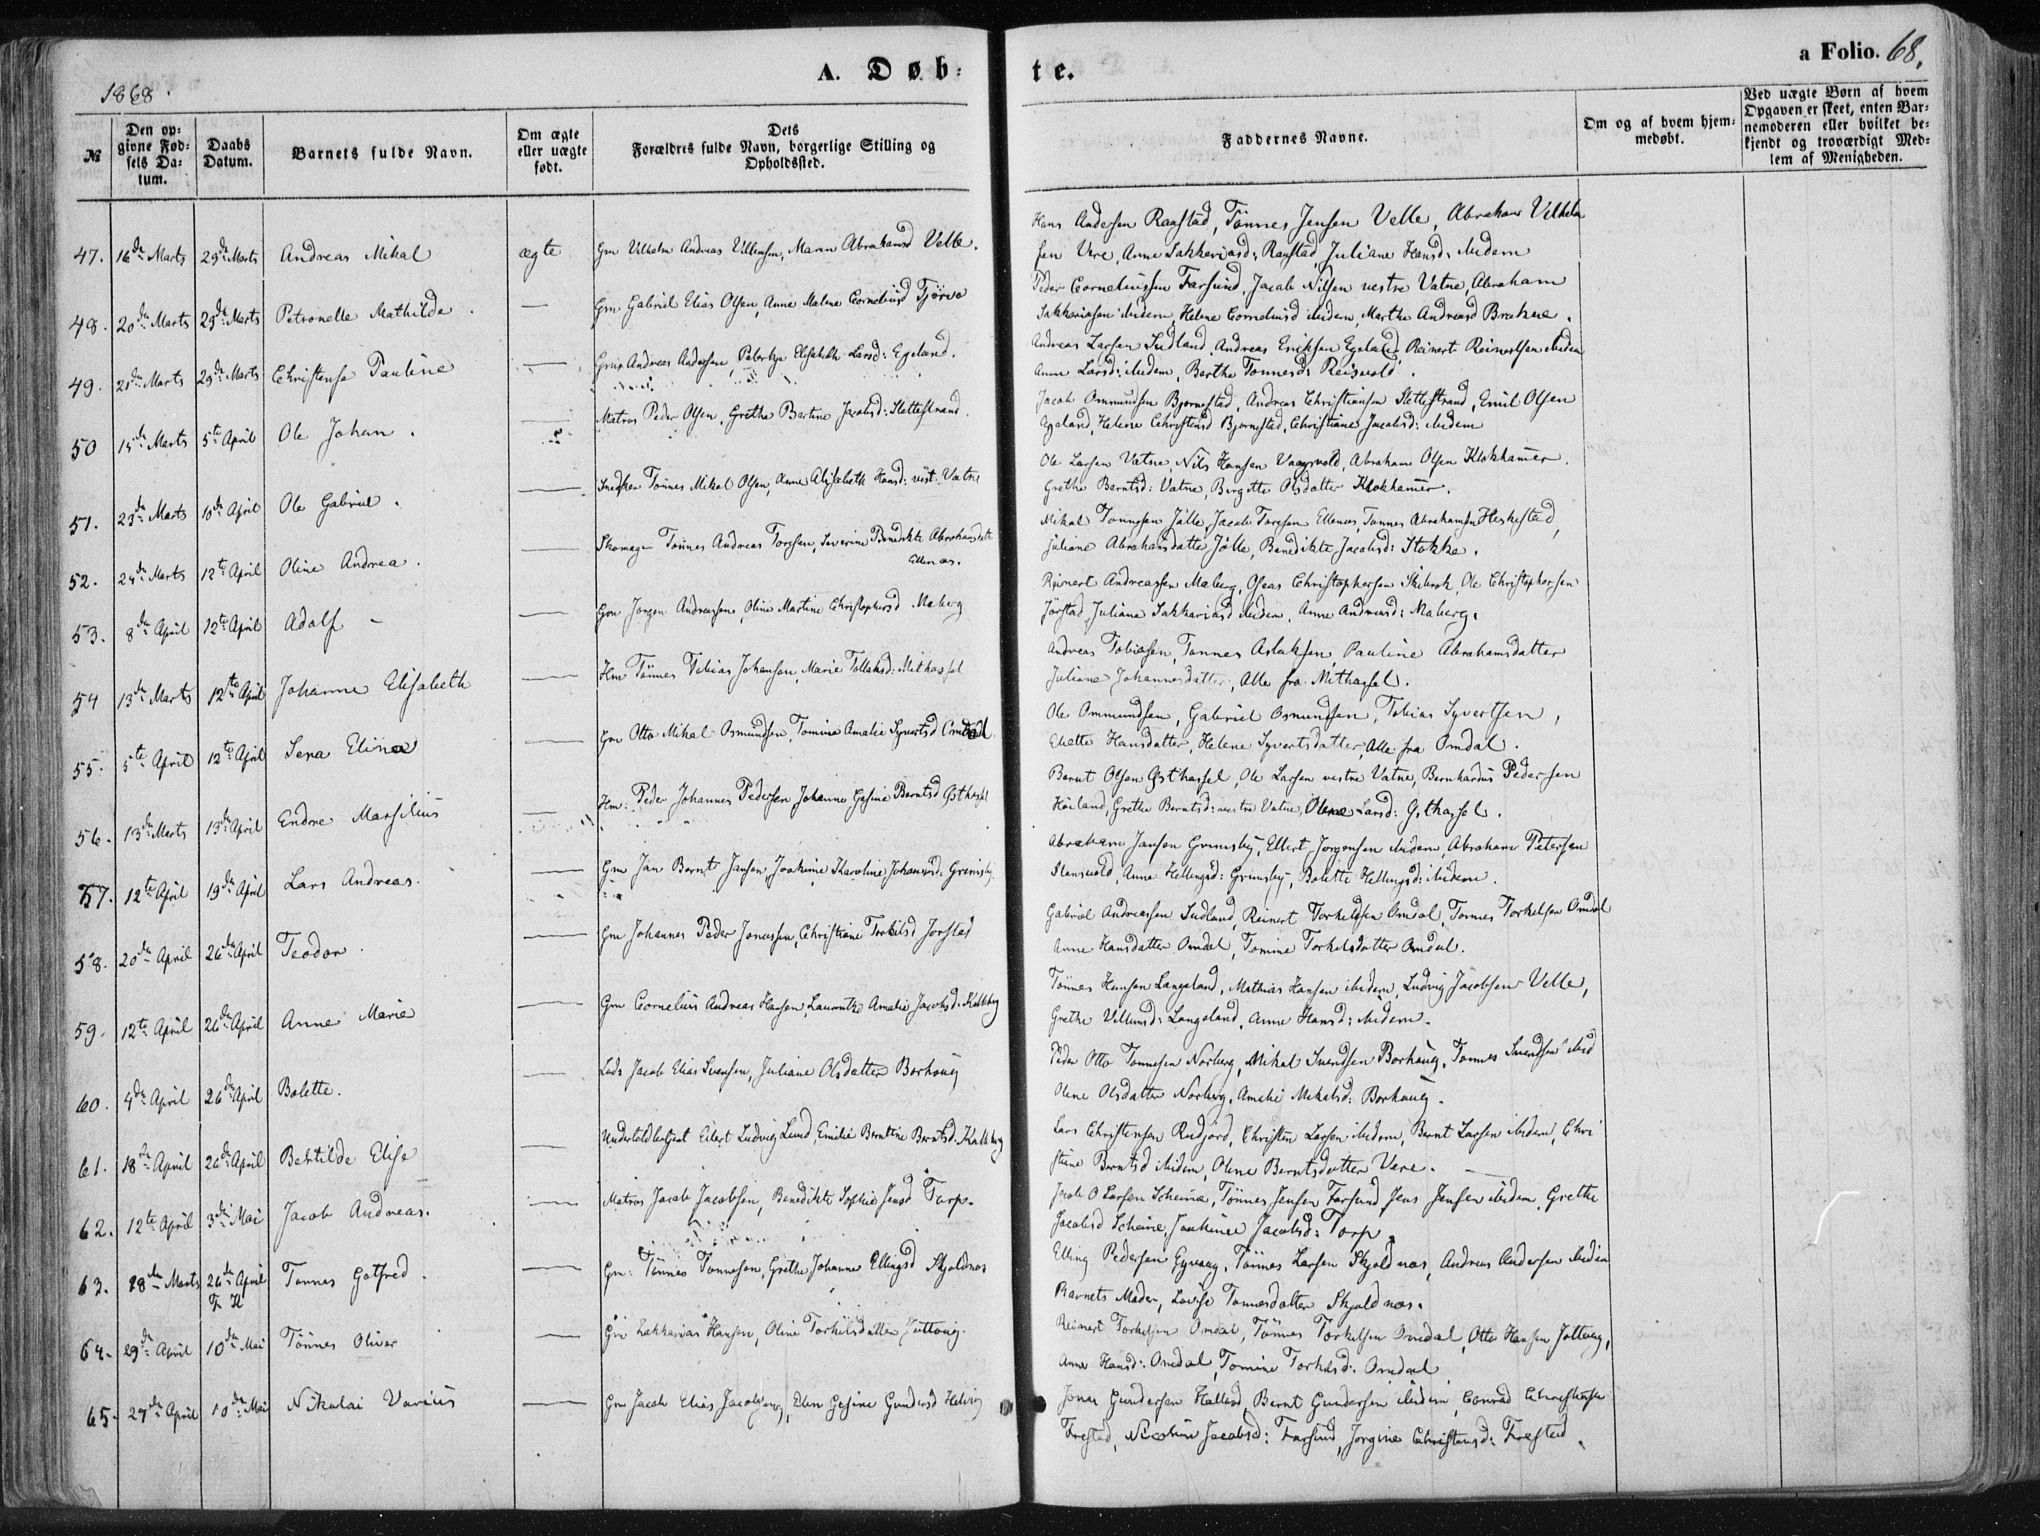 A. Døb-
te.
a Folio. 68.
1868.
№
Den op-
givne Fød-
sels Da-
tum.
Daabs
Datum.
Barnets fulde Navn.
Om ægte
eller uægte
født.
Dets
Forældres fulde Navn, borgerlige Stilling og
Opholdssted.
Faddernes Navne.
Om og af hvem hjem-
medøbt.
Ved uægte Børn af hvem
Opgaven er skeet, enten Bar-
nemoderen eller hvilket be-
kjendt og troværdigt Med-
lem af Menigheden.
47. 16de Marts 29de Marts Andreas Mikal ægte Gm Vilhelm Andreas Villumsen, Maren Abrahamsd Velle.
Hans Andersen Ranstad, Tønnes Jensen Velle, Abraham Vilhelm
sen Vere, Anne Sakkariasd: Ranstad, Juliane Hansd: ibidem
48. 20de Marts 29de Marts Petronelle Mathilde. — Gm Gabriel Elias Olsen, Anne Malene Corneliusd Tjørve
Peder Corneliussen Farsund, Jacob Nilsen vestre Vatne, Abraham
Sakkariasen ibidem, Helene Corneliusd ibidem, Marthe Andreasd Brekne.
49. 21de Marts 29de Marts Christense Pauline — Andreas Andersen, Elisabeth Larsd: Egeland.
Andreas Larsen Sudland, Andreas Eriksen Egeland, Reinert Reinertsen ibidem
Anne Larsd: ibidem, Berthe Tonnesd: Reisvold.
50 15de Marts 5te April Ole Johan. — Matros Peder Olsen, Grethe Bertine Jacobsd: Slettestrand.
Jacob Ommundsen Bjørnestad, Andreas Christiansen Slettestrand, Emil Olsen
Egeland, Helene Christensd Bjørnestad, Christiane Jacobsd: ibidem
51. 23de Marts 10de April Ole Gabriel. — Snedker Tønnes Mikal Olsen, Anne Elisabeth Hansd: vest: Vatne
Ole Larsen Vatne, Nils Hansen Vaagsvold, Abraham Olsen Klokhamer.
Grethe Berntsd: Vatne, Birgitte Olsdatter Klokhamer.
52. 24de Marts 12te April Oline Andrea. — Skomager Tønnes Andreas Torssen, Severine Benedikte Abrahamsdatte
Ellenæs.
Mikal Tonnesen Jølle, Jacob Torssen Ellenæs, Tonnes Abrahamsen Heskestad,
Juliane Abrahamsdatter Jølle, Benedikte Jacobsd: Stokke.
53. 8de April 12te April Adolf — Gm Jørgen Andreassen, Oline Martine Christophersd Maberg
Reinert Andreassen Maberg, Oseas Christophersen Skibrok, Ole Christophersen
Jørstad, Juliane Sakkariasd ibidem, Anne Andreasd: Maberg.
54 13de Marts 12te April Johanne Elisabeth — Hm Tønnes Tobias Johansen, Marie Tollaksd: Mithassel
Andreas Tobiasen, Tonnes Aslaksen, Pauline Abrahamsdatter
Juliane Johannesdatter, Alle fra Mithassel.
55. 5te April 12te April Sena Elina — Gm Otto Mikal Osmundsen, Tomine Amalie Syvertsd Omdal.
Ole Ommundsen, Gabriel Osmundsen, Tobias Syvertsen,
Eliette Hansdatter, Helene Syvertsdatter, Alle fra Omdal.
56. 13de Marts 13de April Endre Marsilius — Hm: Peder Johannes Pedersen, Johanne Gesine Berntsd Østhassel
Bernt Olsen Østhassel, Ole Larsen vestre Vatne, Bernhardus Pedersen
Høiland, Grethe Berntsd: vestre Vatne, Olene Larsd: Østhassel.
57. 12te April 19de April Lars Andreas. — Gm Jan Bernt Jansen, Joakime Karoline Johannesd: Grimsby.
Abraham Jansen Grimsby, Ellert Jørgensen ibidem, Abraham Petersen
Stensvold, Anne Hellingsd: Grimsby, Bolette Hellingsd: ibidem.
58. 20de April 26de April Teodor. — Gm Johannes Peder Jonassen, Christiane Torkilsd Jørstad
Gabriel Andreassen Sudland, Reinert Torkeldsen Omdal, Tønnes Torkelsen Omdal
Anne Hansdatter Omdal, Tomine Torkelsdatter Omdal.
59. 12te April 26de April Anne Marie — Gm Cornelius Andreas Hansen, Laurentze Amalie Jacobsd: Kalleberg
Tønnes Hansen Langeland, Mathias Hansen ibidem, Ludvig Jacobsen Velle,
Grethe Villumsd: Langeland, Anne Hansd: ibidem.
60. 4de April 26de April Bolette. — Lods Jacob Elias Svensen, Juliane Olsdatter Borhoug
Peder Otto Tonnesen Norberg, Mikal Svendsen Borhaug, Tonnes Svendsen ibid
Olene Olsdatter Norberg, Amalie Mikalsd: Borhaug.
61. 18de April 26de April Bertilde Elise — Undertoldbetjent Eilert Ludvig Lund, Emilie Berntine Berntsd: Kalleberg
Lars Christensen Rudjord, Christen Larsen ibidem, Bernt Larsen ibidem, Chri
stine Berntsd ibidem, Olene Berntsdatter Vere. —
62. 12te April 3de Mai Jacob Andreas. — Matros Jacob Jacobsen, Benedikte Sophie Jensd Torp.
Jacob O Larsen Scheime, Tønnes Jensen Farsund, Jens Jensen ibidem, Grethe
Jacobsd Scheime, Joakime Jacobsd: Torp.
63. 28de Marts 26de April
F. K
Tønnes Gotfred. — Gm: Tønnes Tonnesen, Grethe Johanne Ellingsd Skjoldnæs
Elling Pedersen Eyvaag, Tønnes Larsen Skjoldnæs, Andreas Andersen ibidem
Barnets Moder, Lovise Tonnesdatter Skjoldnæs.
64. 29de April 10de Mai Tønnes Oliver — Gm Zakkarias Hansen, Oline Torkilsdatter Juttevig.
Reinert Torkelsen Omdal, Tønnes Torkelsen Omdal, Otto Hansen Jottevig,
Anne Hansd: Omdal, Tomine Torkelsd: Omdal
65. 27de April 10de Mai Nikolai Varius — Gm Jacob Elias Jacobsen, Elen Gesine Gundersd Helvig
Jonas Gundersen Halland, Bernt Gundersen ibidem, Conrad Christensen
Frestad, Nicoline Jacobsd: Farsund, Jorgine Christensd: Frestad.